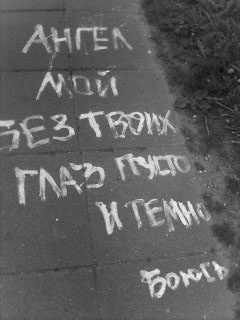 АНГЕЛ
МОЙ
БЕЗ ТВОИХ
ГЛАЗ ПУСТО
И ТЕМНО
Боюсь